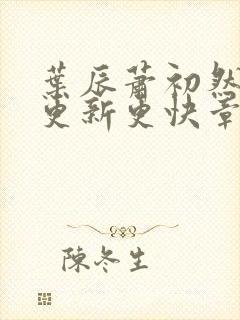 葉辰蕭初然
更新更快章
陳冬生